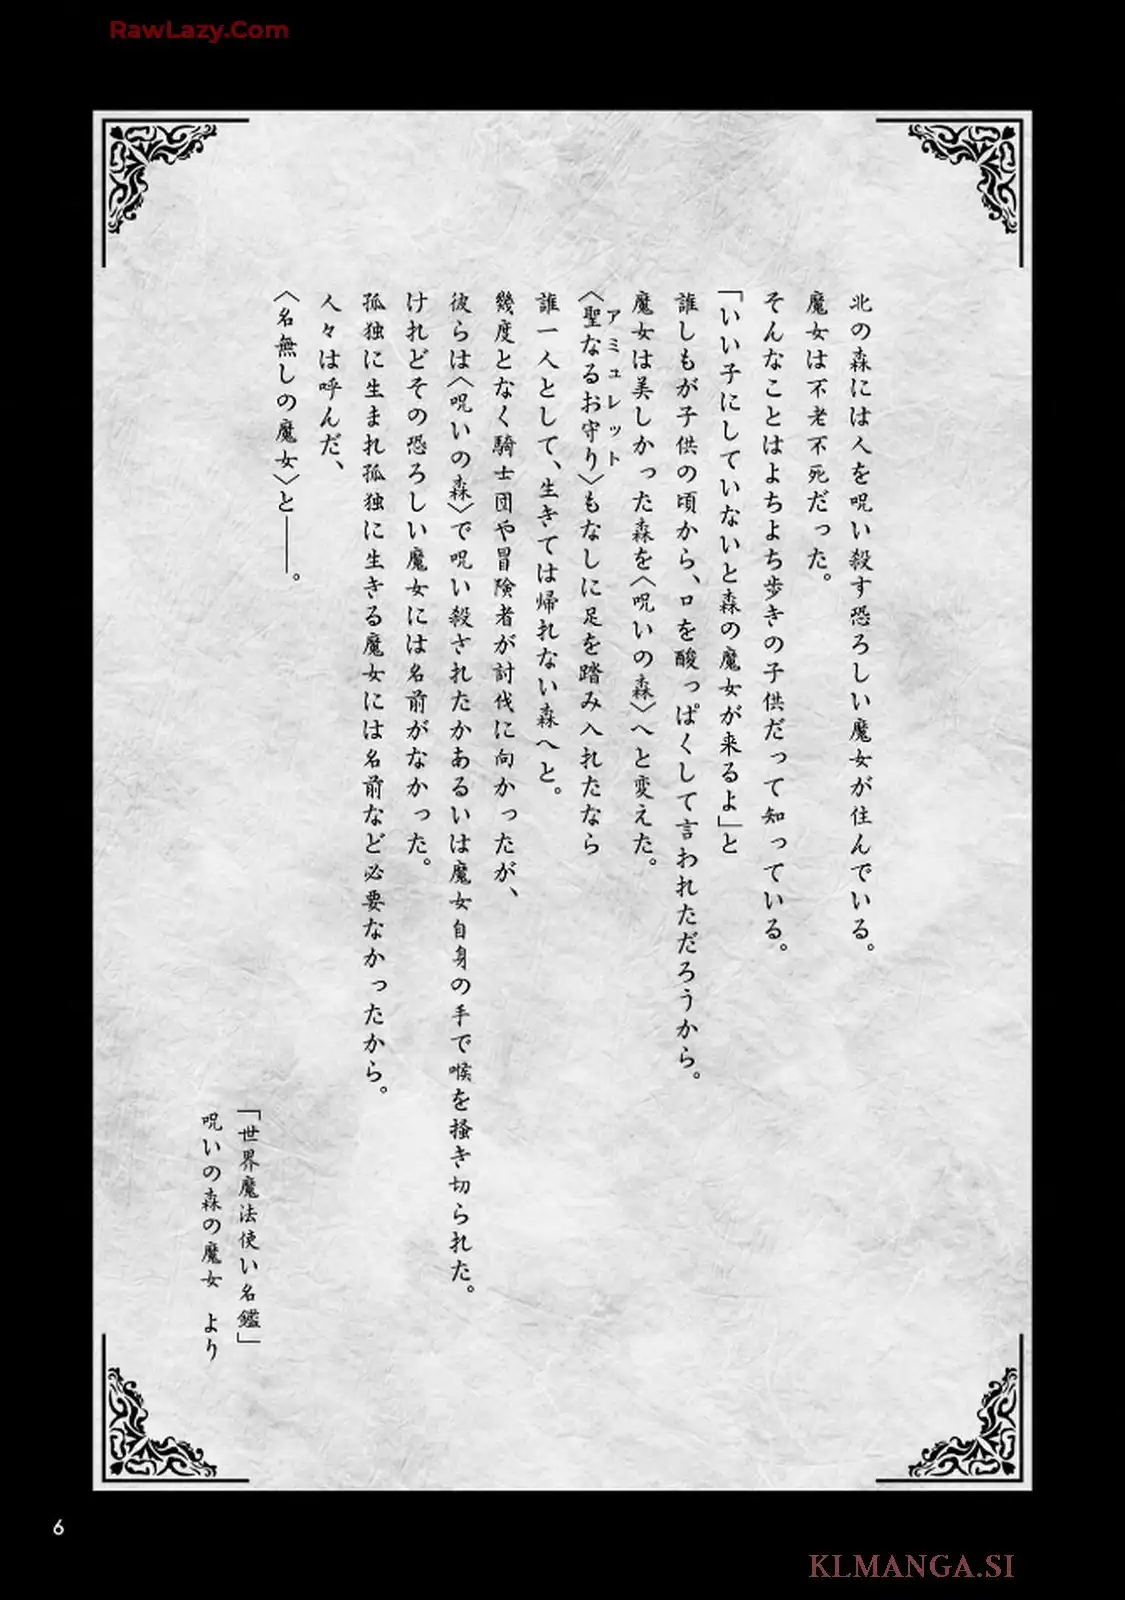 RawLazy.Com
北の森には人を呪い殺す恐ろしい魔女が住んでいる。
魔女は不老不死だった。
そんなことはよちよち歩きの子供だって知っている。
「いい子にしていないと森の魔女が来るよ」と
誰しもが子供の頃から、口を酸っぱくして言われただろうから。
魔女は美しかった森を〈呪いの森〉へと変えた。
アミュレット
〈聖なるお守り〉もなしに足を踏み入れたなら
誰一人として、生きては帰れない森へと。
幾度となく騎士団や冒険者が討伐に向かったが、
彼らは〈呪いの森〉で呪い殺されたかあるいは魔女自身の手で喉を掻き切られた。
けれどその恐ろしい魔女には名前がなかった。
孤独に生まれ孤独に生きる魔女には名前など必要なかったから。
人々は呼んだ、
〈名無しの魔女〉と――。
「世界魔法使い名鑑」
呪いの森の魔女 より
6
KLMANGA.SI